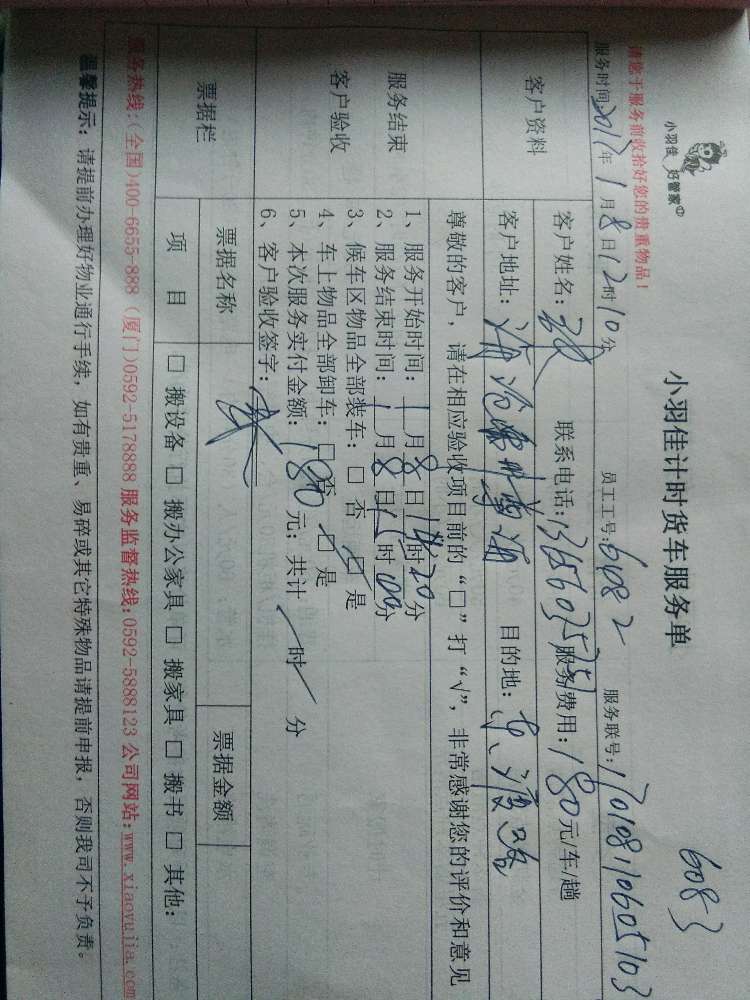 小羽佳 好管家
小羽佳计时货车服务单
6083
请您于服务前收拾好您的贵重物品！
服务时间：2017年1月8日12时10分 员工工号：6082 服务联号：170108110605103
客户资料
客户姓名：张 联系电话： 服务费用：180元/车/趟
客户地址：海沧 目的地：东渡路
尊敬的客户，请在相应验收项目前的“□”打“√”，非常感谢您的评价和意见
服务结束
客户验收
1、服务开始时间：1月8日14时20分
2、服务结束时间：1月8日15时00分
3、候车区物品全部装车：□ 否 □ 是
4、车上物品全部卸车：□ 否 □ 是
5、本次服务实付金额：180元；共计 时 分
6、客户验收签字：
票据栏
票据名称 票据金额
项 目 □ 搬设备 □ 搬办公家具 □ 搬家具 □ 搬书 □ 其他：
服务热线：(全国)400-6655-888 (厦门)0592-5178888 服务监督热线：0592-5888123 公司网站：www.xiaoyujia.com
温馨提示：请提前办理好物业通行手续，如有贵重、易碎或其它特殊物品请提前申报，否则我司不予负责。